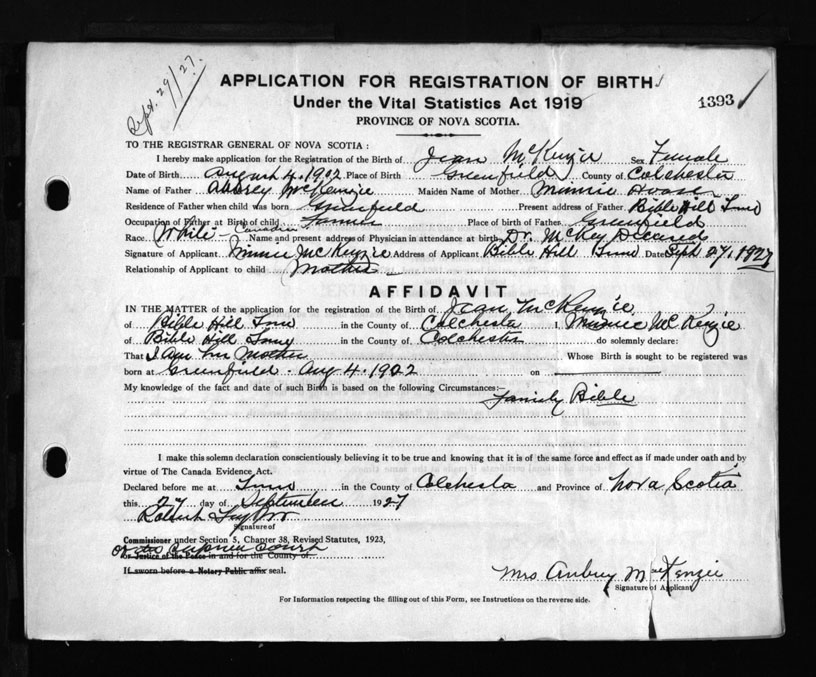 Sept. 29/27.
APPLICATION FOR REGISTRATION OF BIRTH
Under the Vital Statistics Act 1919
1393
PROVINCE OF NOVA SCOTIA.
TO THE REGISTRAR GENERAL OF NOVA SCOTIA:
I hereby make application for the Registration of the Birth of Jean McKenzie Sex Female
Date of Birth August 4. 1902 Place of Birth Greenfield County of Colchester
Name of Father McKenzie Maiden Name of Mother Minnie
Residence of Father when child was born Greenfield Present address of Father Bible Hill Truro
Occupation of Father at Birth of child Farmer Place of birth of Father Greenfield
Race White - Canadian Name and present address of Physician in attendance at birth Dr. McKay Deceased
Signature of Applicant Minnie McKenzie Address of Applicant Bible Hill Truro Date Sept 27, 1927
Relationship of Applicant to child Mother
AFFIDAVIT
IN THE MATTER of the application for the registration of the Birth of Jean McKenzie
of Bible Hill Truro in the County of Colchester I, Minnie McKenzie
of Bible Hill Truro in the County of Colchester do solemnly declare:
That I am her Mother Whose Birth is sought to be registered was
born at Greenfield. Aug 4. 1902 on
My knowledge of the fact and date of such Birth is based on the following Circumstances:—
Family Bible
I make this solemn declaration conscientiously believing it to be true and knowing that it is of the same force and effect as if made under oath and by
virtue of The Canada Evidence Act.
Declared before me at Truro in the County of Colchester and Province of Nova Scotia
this 27 day of September 1927
Robert
Signature of
Commissioner under Section 5, Chapter 38, Revised Statutes, 1923,
of the Supreme Court
or Justice of the Peace in and for the County of
If sworn before a Notary Public affix seal.
Mrs Aubrey MacKenzie
Signature of Applicant
For Information respecting the filling out of this Form, see Instructions on the reverse side.